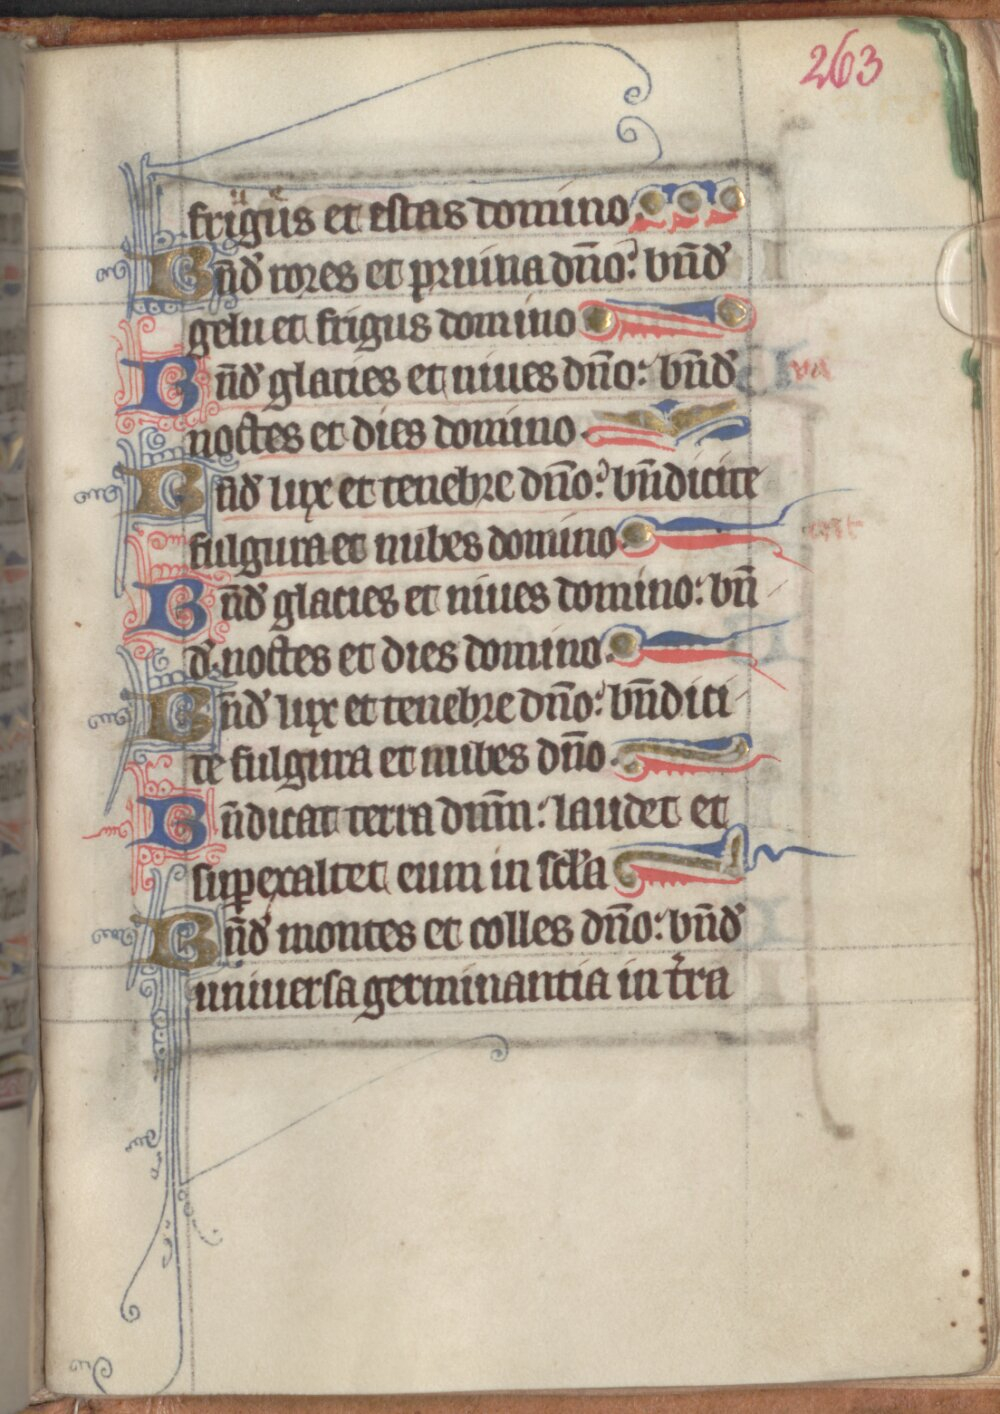 263
frigus et estas domino
Bn̄d rores et pruina dn̄o: bn̄d
gelu et frigus domino
Bn̄d glacies et niues dn̄o: bn̄d
va
noctes et dies domino
Bn̄d lux et tenebre dn̄o: bn̄dicite
fulgura et nubes domino
Bn̄d glacies et niues domino: bn̄
d. noctes et dies domino.
Bn̄d lux et tenebre dn̄o: bn̄dici
te fulgura et nubes dn̄o.
Bn̄dicat terra dnm̄: laudet et
suꝑexaltet eum in scl̄a
Bn̄d montes et colles dn̄o: bn̄d
uniuersa germinantia in t̄ra